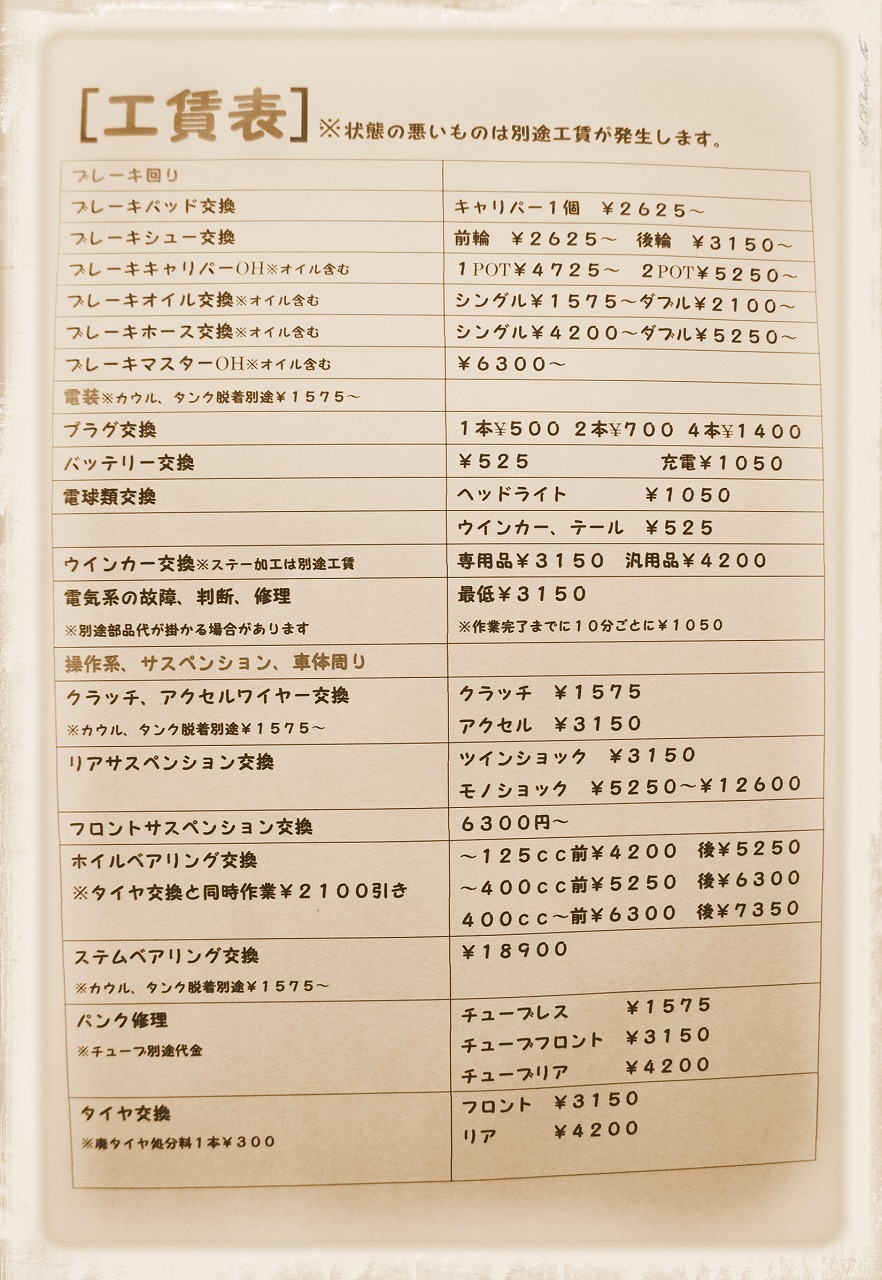 [工賃表]※状態の悪いものは別途工賃が発生します。
ブレーキ回り
ブレーキパッド交換 キャリパー１個 ￥２６２５～
ブレーキシュー交換 前輪 ￥２６２５～ 後輪 ￥３１５０～
ブレーキキャリパーOH※オイル含む １POT￥４７２５～ ２POT￥５２５０～
ブレーキオイル交換※オイル含む シングル￥１５７５～ダブル￥２１００～
ブレーキホース交換※オイル含む シングル￥４２００～ダブル￥５２５０～
ブレーキマスターOH※オイル含む ￥６３００～
電装※カウル、タンク脱着別途￥１５７５～
プラグ交換 １本¥５００ ２本¥７００ ４本¥１４００
バッテリー交換 ￥５２５ 充電￥１０５０
電球類交換 ヘッドライト ￥１０５０
ウインカー、テール ￥５２５
ウインカー交換※ステー加工は別途工賃 専用品￥３１５０ 汎用品￥４２００
電気系の故障、判断、修理 最低￥３１５０
※別途部品代が掛かる場合があります ※作業完了までに１０分ごとに￥１０５０
操作系、サスペンション、車体周り
クラッチ、アクセルワイヤー交換 クラッチ ￥１５７５
※カウル、タンク脱着別途￥１５７５～ アクセル ￥３１５０
リアサスペンション交換 ツインショック ￥３１５０
モノショック ￥５２５０～￥１２６００
フロントサスペンション交換 ６３００円～
ホイルベアリング交換 ～１２５ｃｃ前￥４２００ 後￥５２５０
※タイヤ交換と同時作業￥２１００引き ～４００ｃｃ前￥５２５０ 後￥６３００
４００ｃｃ～前￥６３００ 後￥７３５０
ステムベアリング交換 ￥１８９００
※カウル、タンク脱着別途￥１５７５～
パンク修理 チューブレス ￥１５７５
※チューブ別途代金 チューブフロント ￥３１５０
チューブリア ￥４２００
タイヤ交換 フロント ￥３１５０
※廃タイヤ処分料１本￥３００ リア ￥４２００